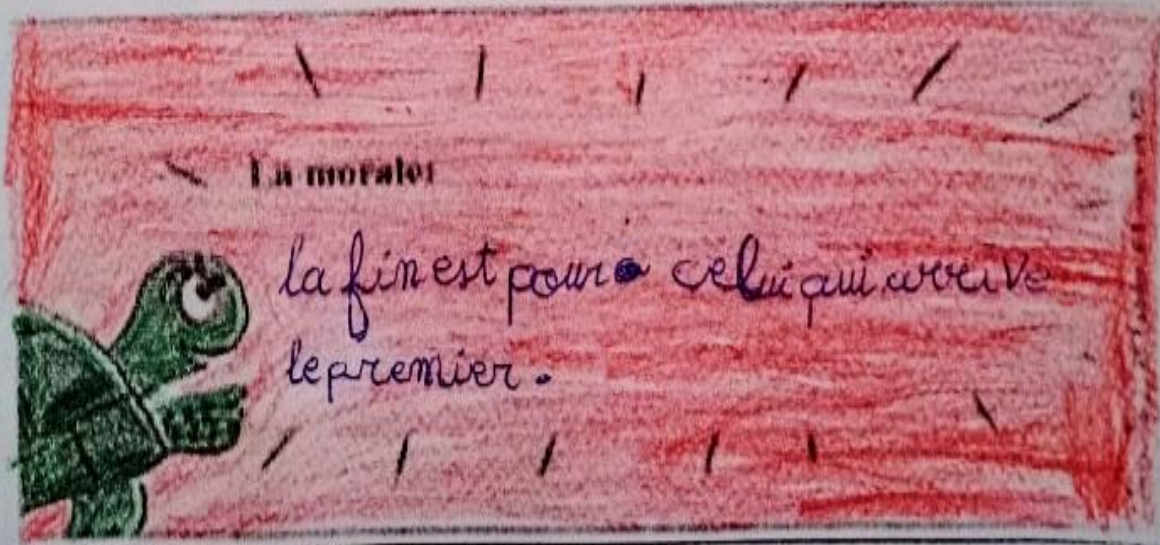 La morale:
la fin est pour celui qui arrive
le premier.